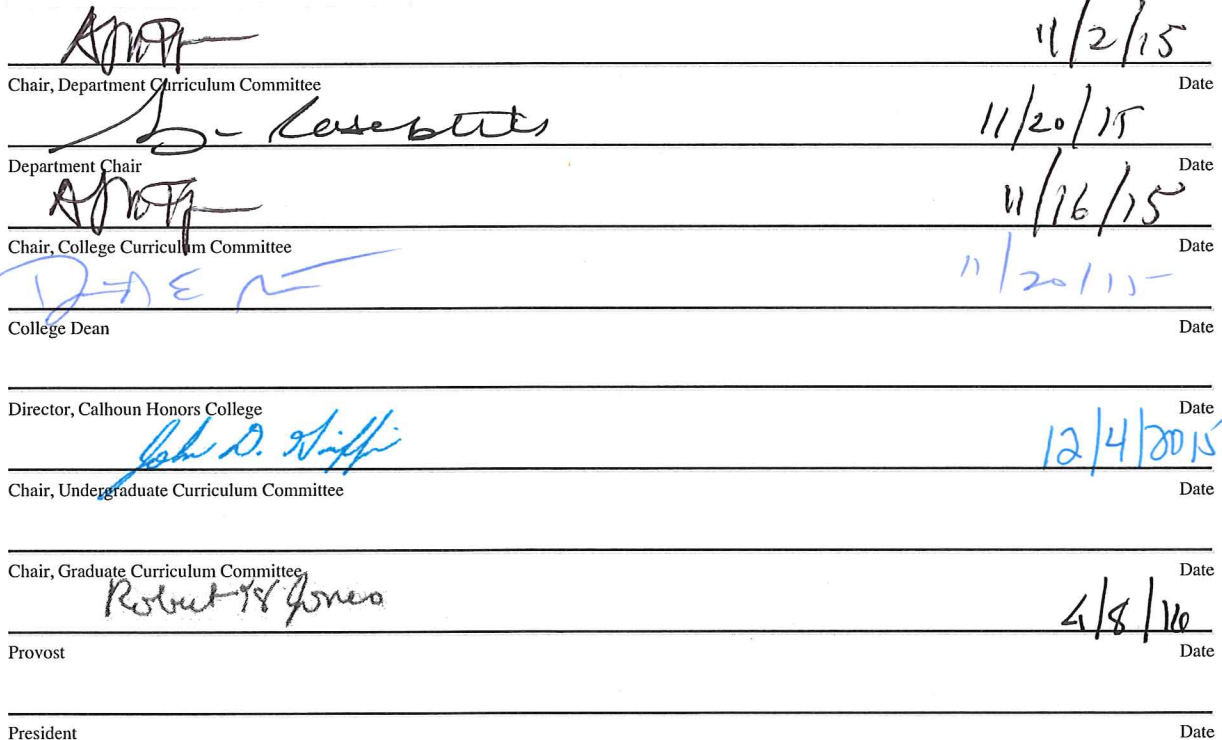 11/2/15
Chair, Department Curriculum Committee Date
11/20/15
Department Chair Date
11/16/15
Chair, College Curriculum Committee Date
11/20/15
College Dean Date
Director, Calhoun Honors College Date
John D. Griffin 12/4/2015
Chair, Undergraduate Curriculum Committee Date
Chair, Graduate Curriculum Committee Date
Robert H Jones 4/8/16
Provost Date
President Date